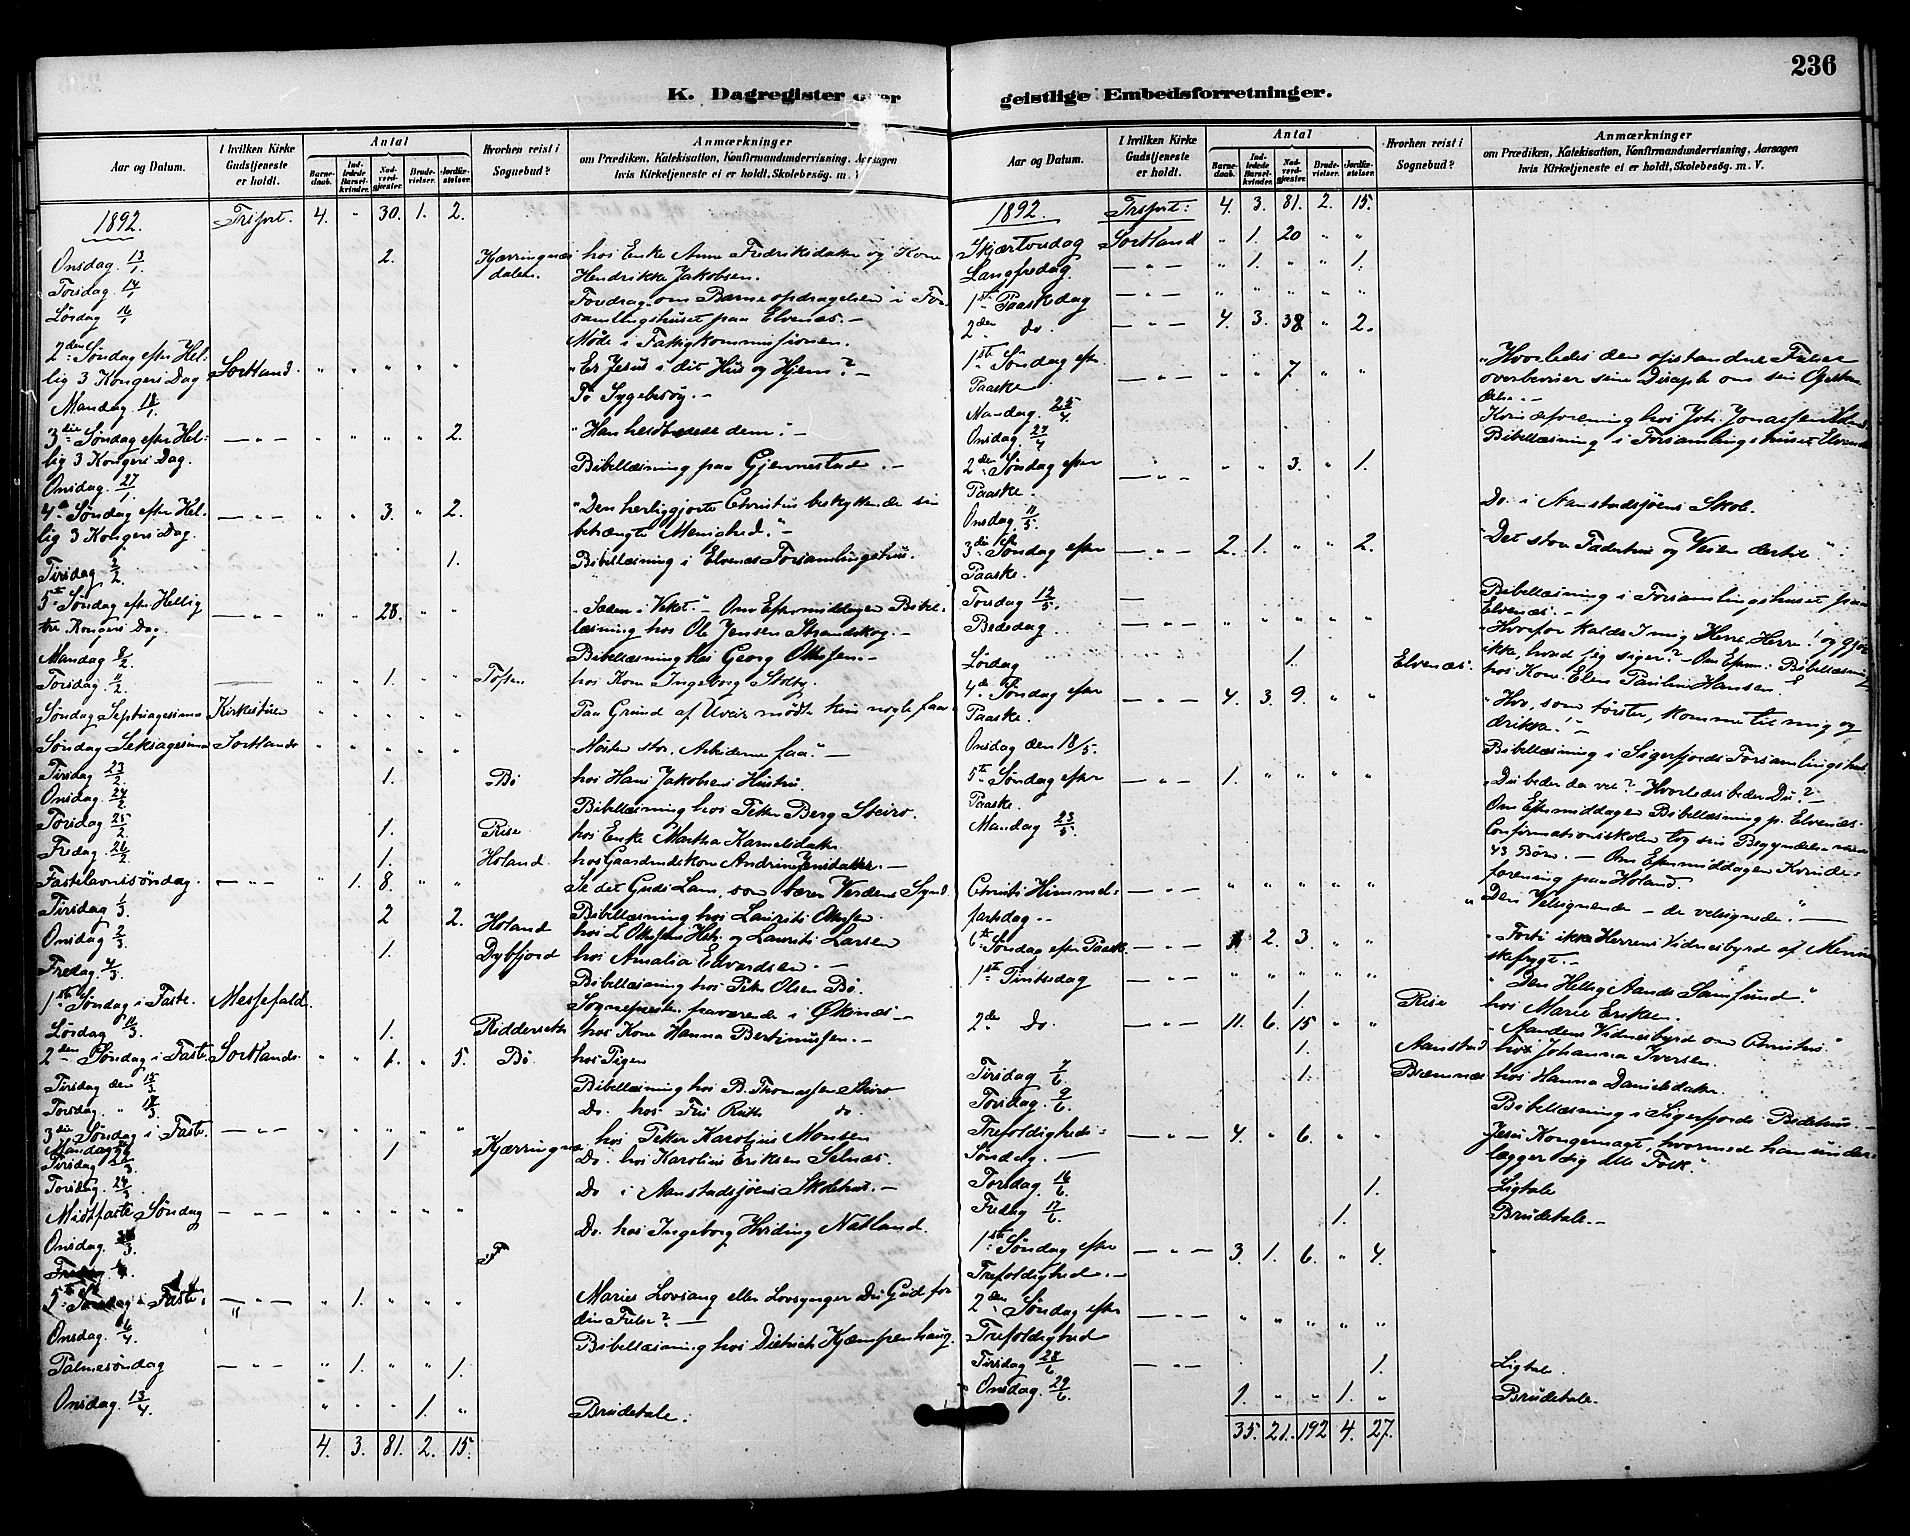 236
K. Dagregister over geistlige Embedsforretninger.
Aar og Datum.
I hvilken Kirke Gudstjeneste er holdt.
Antal
Barnedaab.
Indledede Barselkvinder.
Nadverdgjæster.
Brudevielser.
Jordfæstelser.
Hvorhen reist i Sognebud?
Anmærkninger
om Prædiken, Katekisation, Konfirmandundervisning, Aarsagen
hvis Kirketjeneste ei er holdt, Skolebesøg. m. V.
1892. Trsport. 4. " 30. 1. 2.
Onsdag 13/1 2. Kjærringnes hos Enke Anne Fredriksdatter og Kone
dalen. Hendrikke Jakobsen.
Torsdag 14/1 Foredrag om Børneopdragelsen i For
Lørdag 16/1 samlingshuset paa Elvenæs.—
Møde i Fattigkommisionen.
2den Søndag efter Hel-
lig 3 Kongers Dag Sortland. " " " " " "Er Jesus i dit Hus og Hjem?"—
Mandag 18/1 To Sygebesøg.—
3die Søndag efter Hel- — " — " " " " 2.
lig 3 Kongers Dag.
Onsdag 27/1 Bibellæsning paa Gjennestad.—
4de Søndag efter Hel- — " — " " 3. " 2. "Den herliggjorte Christus beskyttende sin
lig 3 Kongers Dag. betrængte Menighed."
Tirsdag 2/2 1. Bibellæsning i Elvenæs Forsamlingshus.
5te Søndag efter Hellig — " — " " 28. " " Om Eftermiddagen Bibel-
tre Kongers Dag. læsning hos Ole Jensen Strandskog.—
Mandag 8/2 Bibellæsning hos Georg Ottesen.—
Torsdag 11/2 " " 1. " " Toften hos Kone Ingeborg
Søndag Septuagesima " " " " " Paa Grund af Uveir mødte kun nogle faa.
Søndag Seksagesima Sortland. " " " " " "Høsten stor, Arbeiderne faa."—
Tirsdag 23/2 1. Bø hos Hans Jakobsens Hustru.
Onsdag 24/2 Bibellæsning hos Peter Berg Steiro.
Torsdag 25/2 1. Rise hos Enke Martha Karnelsdatter
Fredag 26/2 1. Holand. hos Gaardmdskone Andrine Jensdatter.—
Fastelavnssøndag. — " — " 1. 8. " " Se det Guds Lam, som bærer Verdens Synd.
Tirsdag 1/3 2 2. Bibellæsning hos Laurits Ottesen
Onsdag 2/3 Holand hos L. Ottesens Hst. og Laurits Larsen
Fredag 4/3 1. Dybfjord hos Amalia Edvardsen.—
Bibellæsning hos Peter Olsen Bø.
1ste Søndag i Faste. Messefald. Sognepresten fraværende i Øksnæs.—
Lørdag 12/3 1. Ridderseter hos Kone Hanna Bertinussen.—
2den Søndag i Faste. Sortland. " " 1. " 5. Bø hos Pigen
Tirsdag den 15/3 Bibellæsning hos B. Thomassen Steiro
Torsdag " 17/3 Do. hos Fru Ruth do.
3die Søndag i Faste. — " — " " " " "
Mandag hos Petter Karolius Monsen
Tirsdag 1 Kjærringnes Do. hos Karolius Eriksen Selnæs.
Torsdag 24/3 Do i Aanstadsjøens Skolehus.—
Midtfaste Søndag — " — " " " " "
Onsdag Do. hos Ingeborg Hviding Natland.
5te Søndag i Faste. — " — " 1. " " " Maries Lovsang eller Lovsynger Du Gud for
din Frelse?—
Onsdag. 6/4 Bibellæsning hos Dietrich Kjæmpenhaug.
Palmesøndag — " — " 1. " " 1.
Onsdag. 13/4 " " " 1. " Brudetale.
4. 3. 81. 2. 15.
Aar og Datum.
I hvilken Kirke Gudstjeneste er holdt.
Antal
Barnedaab.
Indledede Barselkvinder.
Nadverdgjæster.
Brudevielser.
Jordfæstelser.
Hvorhen reist i Sognebud?
Anmærkninger
om Prædiken, Katekisation, Konfirmandundervisning, Aarsagen
hvis Kirketjeneste ei er holdt, Skolebesøg. m. V.
1892. Trsport: 4. 3. 81. 2. 15.
Skjærtorsdag Sortland " 1. 20 " "
Langfredag. — " — " 1. " " 1.
1ste Paaskedag — " — " " " " "
2den do. — " — 4. 3. 38 " 2.
1ste Søndag efter — " — " " 7. " " "Hvorledes den opstandne Frelser
Paaske overbeviser sine Disciple om sin Opstan-
delse.—
Mandag. 25/4 Kvindeforening hos Joh. Jonassen
Onsdag. 27/4 Bibellæsning i Forsamlingshuset Elvenæs
2den Søndag efter — " — " " 3. " 1.
Paaske.
Onsdag 11/5 Do. i Aanstadsjøens Skole.
3die Søndag efter — " — 2. 1. " " 2. "Det store Faderhus og Veien dertil":
Paaske.
Torsdag 12/5. — Bibellæsning i Forsamlingshuset paa
Elvenæs.—
Bededag. " " " " " "Hvorfor kalde I mig Herre, Herre! og gjøre
ikke, hvad jeg siger?"—Om Efterm: Bibellæsning
Lørdag 1. Elvenæs. hos Kone Elen Pauline Hansen.
4de Søndag efter — " — 4. 3. 9. " " "Hver, som tørster, komme til mig og
Paaske. drikke!"—
Onsdag den 18/5. Bibellæsning i Sigerfjords Forsamlingshus
5te Søndag efter — " — 1. " " " " "Du beder da vel?—Hvorledes beder Du?"—
Paaske. Om Eftermiddagen Bibellæsning p. Elvenæs.
Mandag 23/5. Confirmationsskolen tog sin Begyndelse med
43 Børn.—Om Eftermiddagen Kvinde-
forening paa Holand.
Christi Himmel- — " — " " " " "
fartsdag.— "Den Velsignende—de velsignede."—
6te Søndag efter Paaske — " — 2. 3. " " "Fortie ikke Herrens Vidnesbyrd af Menne
skefrygt.—
1ste Pintsedag — " — " " " " " "Den Hellig Aands Samfund."
1. Rise hos Marie Eriksen.
2den Do. — " — 11. 6. 15 " " "Aandens Vidnesbyrd om Christus."
1. Aanstad hos Johanna Iversen.
Tirsdag 7/6 1. Blæmnæs hos Hanna Danielsdatter
Torsdag 9/6. Bibellæsning i Sigerfjords Bedehus.—
Trefoldigheds- — " — 4. " 6. " " Jesu Kongemagt, hvormed han under-
Søndag.— lægger sig alle Folk."
Torsdag 16/6. 1. Ligtale
Fredag 17/6 1. Brudetale.—
1ste Søndag efter — " — 3. 1. 6. " 4. "
Trefoldighed.—
2den Søndag efter — " — " " " " "
Trefoldighed
Tirsdag 28/6 — " — 1. Ligtale.
Onsdag. 29/6. 1. " " 1. " Brudetale.
35. 21. 192 4. 27.